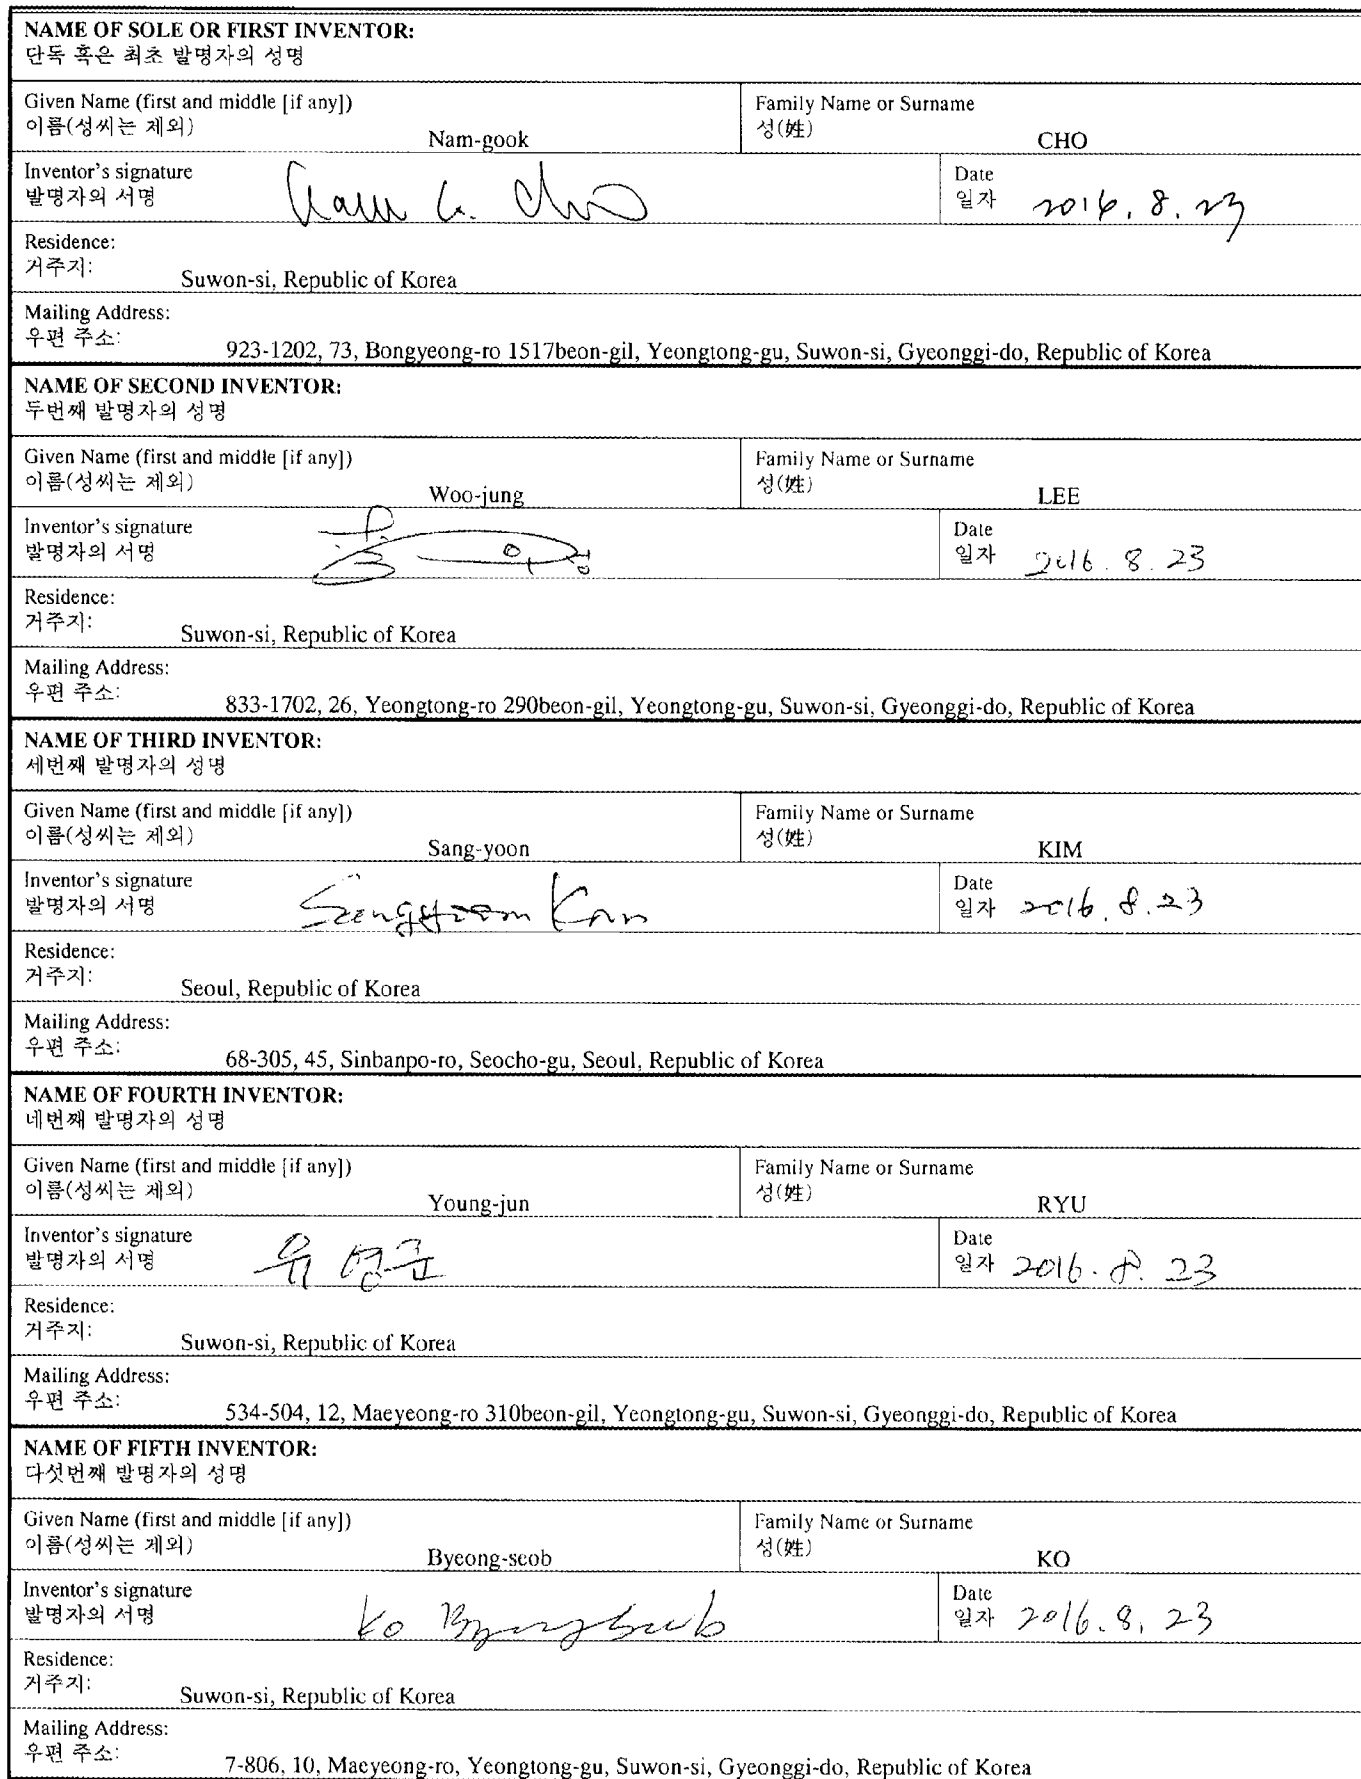 NAME OF SOLE OR FIRST INVENTOR:
단독 혹은 최초 발명자의 성명
Given Name (first and middle [if any])
이름(성씨는 제외)
Nam-gook
Family Name or Surname
성(姓)
CHO
Inventor's signature
발명자의 서명
Nam G. Cho
Date
일자 2016. 8. 23
Residence:
거주지:
Suwon-si, Republic of Korea
Mailing Address:
우편 주소:
923-1202, 73, Bongyeong-ro 1517beon-gil, Yeongtong-gu, Suwon-si, Gyeonggi-do, Republic of Korea
NAME OF SECOND INVENTOR:
두번째 발명자의 성명
Given Name (first and middle [if any])
이름(성씨는 제외)
Woo-jung
Family Name or Surname
성(姓)
LEE
Inventor's signature
발명자의 서명
Date
일자 2016. 8. 23
Residence:
거주지:
Suwon-si, Republic of Korea
Mailing Address:
우편 주소:
833-1702, 26, Yeongtong-ro 290beon-gil, Yeongtong-gu, Suwon-si, Gyeonggi-do, Republic of Korea
NAME OF THIRD INVENTOR:
세번째 발명자의 성명
Given Name (first and middle [if any])
이름(성씨는 제외)
Sang-yoon
Family Name or Surname
성(姓)
KIM
Inventor's signature
발명자의 서명
Sangyoon Kim
Date
일자 2016. 8. 23
Residence:
거주지:
Seoul, Republic of Korea
Mailing Address:
우편 주소:
68-305, 45, Sinbanpo-ro, Seocho-gu, Seoul, Republic of Korea
NAME OF FOURTH INVENTOR:
네번째 발명자의 성명
Given Name (first and middle [if any])
이름(성씨는 제외)
Young-jun
Family Name or Surname
성(姓)
RYU
Inventor's signature
발명자의 서명
유영준
Date
일자 2016. 8. 23
Residence:
거주지:
Suwon-si, Republic of Korea
Mailing Address:
우편 주소:
534-504, 12, Maeyeong-ro 310beon-gil, Yeongtong-gu, Suwon-si, Gyeonggi-do, Republic of Korea
NAME OF FIFTH INVENTOR:
다섯번째 발명자의 성명
Given Name (first and middle [if any])
이름(성씨는 제외)
Byeong-seob
Family Name or Surname
성(姓)
KO
Inventor's signature
발명자의 서명
Ko Byeongseob
Date
일자 2016. 8. 23
Residence:
거주지:
Suwon-si, Republic of Korea
Mailing Address:
우편 주소:
7-806, 10, Maeyeong-ro, Yeongtong-gu, Suwon-si, Gyeonggi-do, Republic of Korea